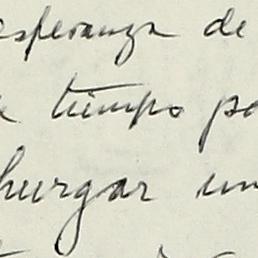 esperanza de
tiempo po
hurgar un